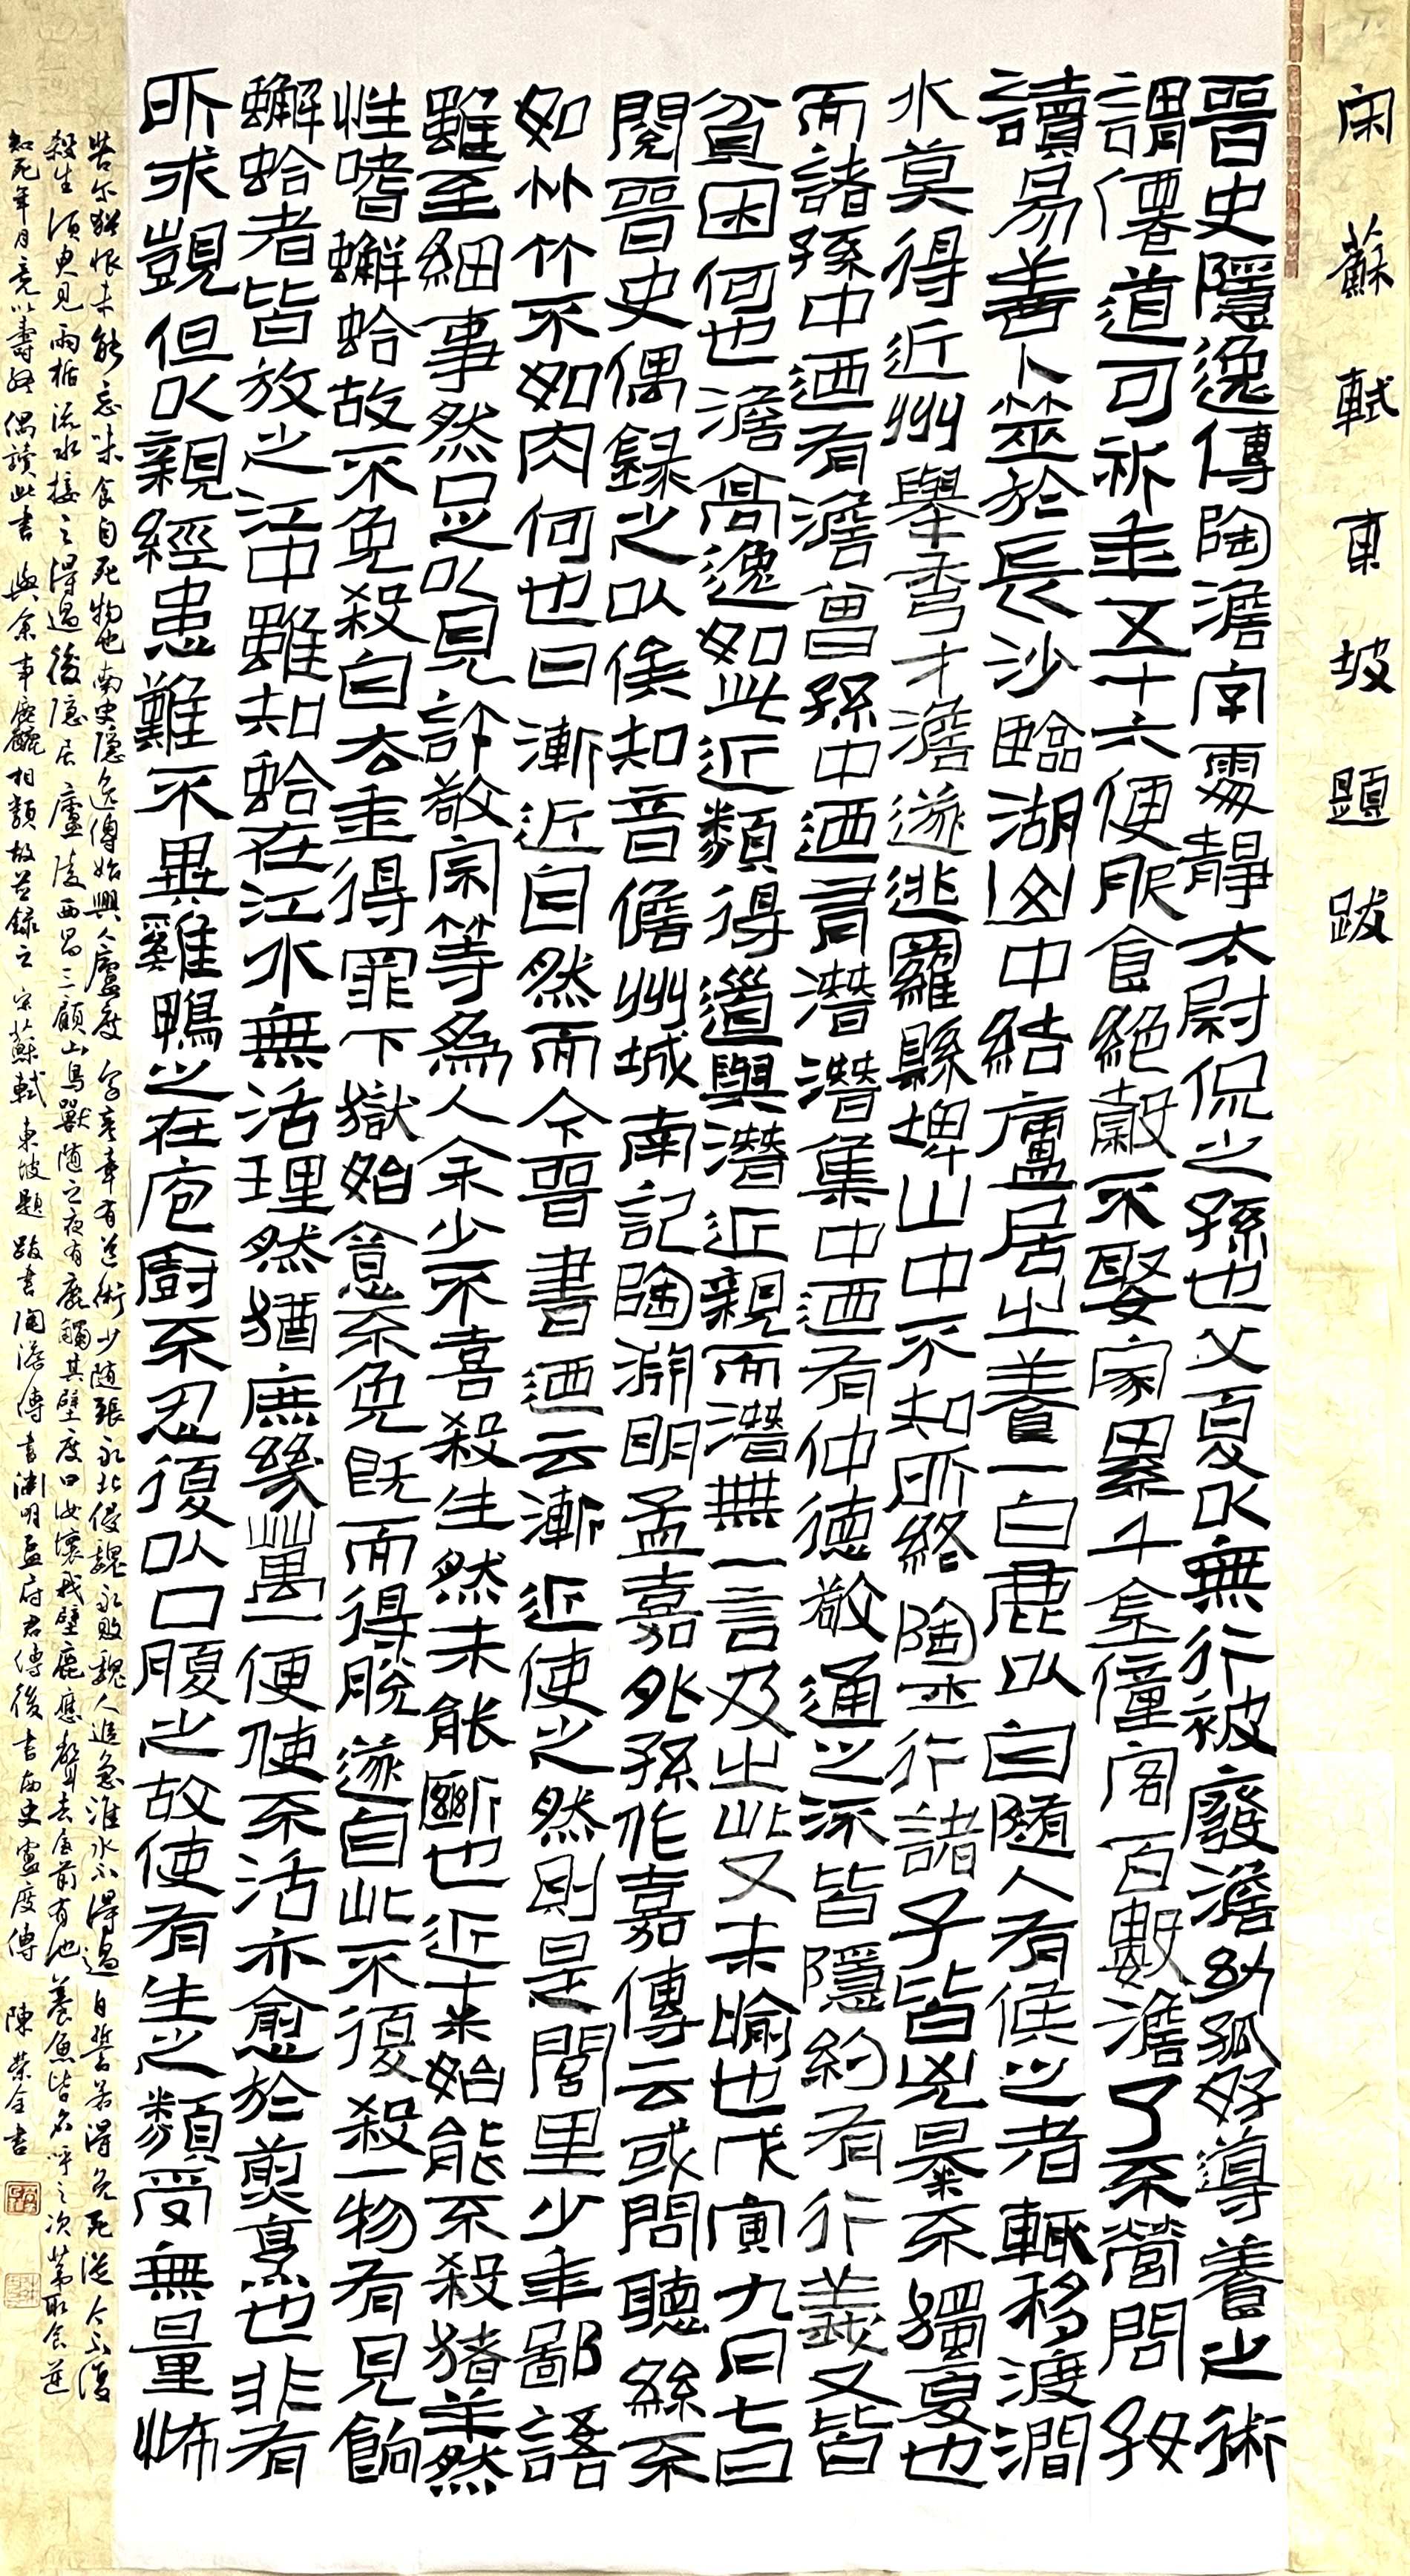 宋蘇軾東坡題跋
晉史隱逸傳陶澹字處靜太尉侃之孫也父夏以無行被廢澹幼孤好導養之術
謂僊道可祈年十五六便服食絕穀不娶家累千金僮客百數澹了不營問好
讀易善卜筮於長沙臨湘山中結廬居之養一白鹿以自隨人有候之者輒移渡澗
水莫得近州舉秀才澹遂逃羅縣埤山中不知所終陶士行諸子皆凶暴不獨夏也
而諸孫中迺有澹曾孫中迺有潛潛集中迺有仲德敬通之流皆隱約有行義又皆
貧困何也澹高逸如此近類得道與潛近親而潛無一言及之此又未喻也戊寅九月七日
閱晉史偶錄之以俟知音儋州城南記陶淵明孟嘉外孫作嘉傳云或問聽絲不
如竹竹不如肉何也曰漸近自然而今晉書迺云漸近使之然則是閭里少年鄙語
雖至細事然足以見許敬宗等為人余少不喜殺生然未能斷也近年來始能不殺豬羊然
性嗜蠏蛤故不免殺自去年得罪下獄始意不免既而得脫遂自此不復殺一物有見餉
蠏蛤者皆放之江中雖知蛤在江水無活理然猶庶幾萬一便使不活亦愈於煎烹也非有
所求覬但以親經患難不異雞鴨之在庖廚不忍復以口腹之故使有生之類受無量怖
苦尔猶恨未能忘味食自死物也南史隱逸傳始興人盧度字彥章有道術少随張永北侵魏永敗魏人追急淮水不得過自誓若得免死從今不復
殺生須臾見兩楯流水接之得過後隱居廬陵西昌三顧山鳥獸随之夜有鹿觸其壁度曰汝壞我壁鹿應聲去屋前有池養魚皆名呼之次第取食逆
知死年月竟以壽終偶讀此書與余事麄相類故並錄之宋蘇軾東坡題跋書陶澹傳書淵明孟府君傳後書南史盧度傳 陳榮全書